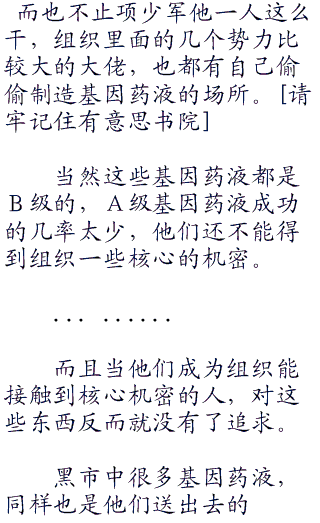 而也不止项少军他一人这么
干，组织里面的几个势力比
较大的大佬，也都有自己偷
偷制造基因药液的场所。[请
牢记住有意思书院]
当然这些基因药液都是
B级的，A级基因药液成功
的几率太少，他们还不能得
到组织一些核心的机密。
... ......
而且当他们成为组织能
接触到核心机密的人，对这
些东西反而就没有了追求。
黑市中很多基因药液，
同样也是他们送出去的